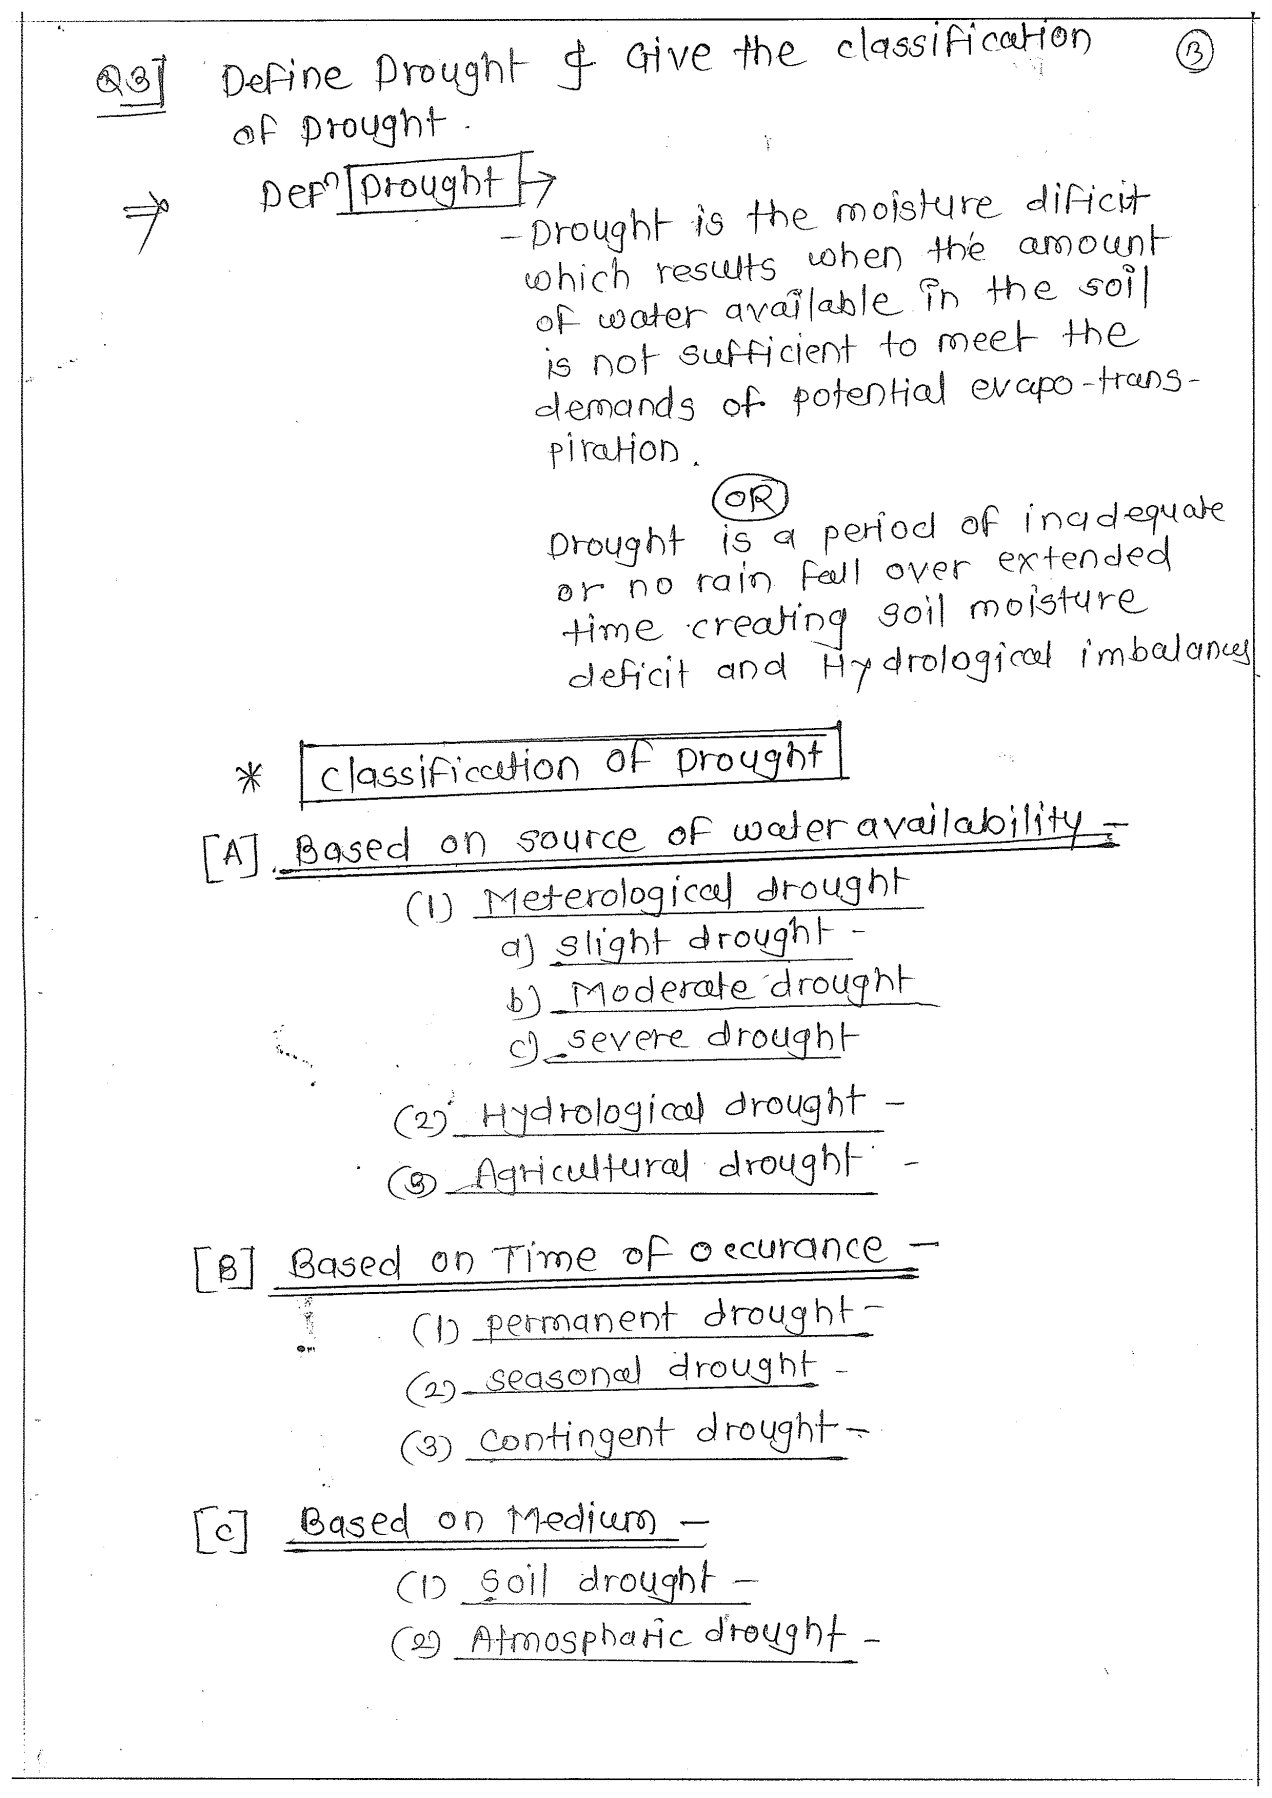 Q3] Define Drought & Give the classification ③
of Drought.
⇒ Defⁿ Drought →
- Drought is the moisture dificit
which results when the amount
of water available in the soil
is not sufficient to meet the
demands of potential evapo-trans-
piration.
OR
Drought is a period of inadequate
or no rain fall over extended
time creating soil moisture
deficit and Hydrological imbalances
* Classification of Drought
[A] Based on source of water availability -
(1) Meterological drought
a) slight drought -
b) Moderate drought
c) severe drought
(2) Hydrological drought -
(3) Agricultural drought -
[B] Based on Time of occurance -
(1) permanent drought -
(2) seasonal drought -
(3) contingent drought -
[C] Based on Medium -
(1) Soil drought -
(2) Atmospharic drought -